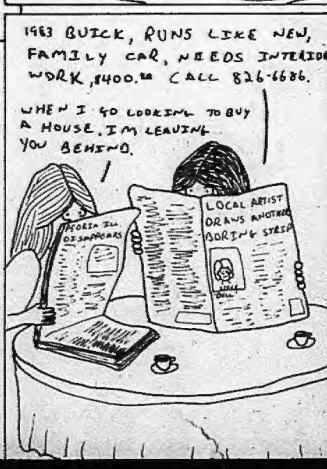 1983 BUICK, RUNS LIKE NEW,
FAMILY CAR, NEEDS INTERIOR
WORK, $400.00 CALL 826-6686.
WHEN I GO LOOKING TO BUY
A HOUSE, I'M LEAVING
YOU BEHIND.
PEORIA ILL.
DISAPPEARS
LOCAL ARTIST
DRAWS ANOTHER
BORING STRIP